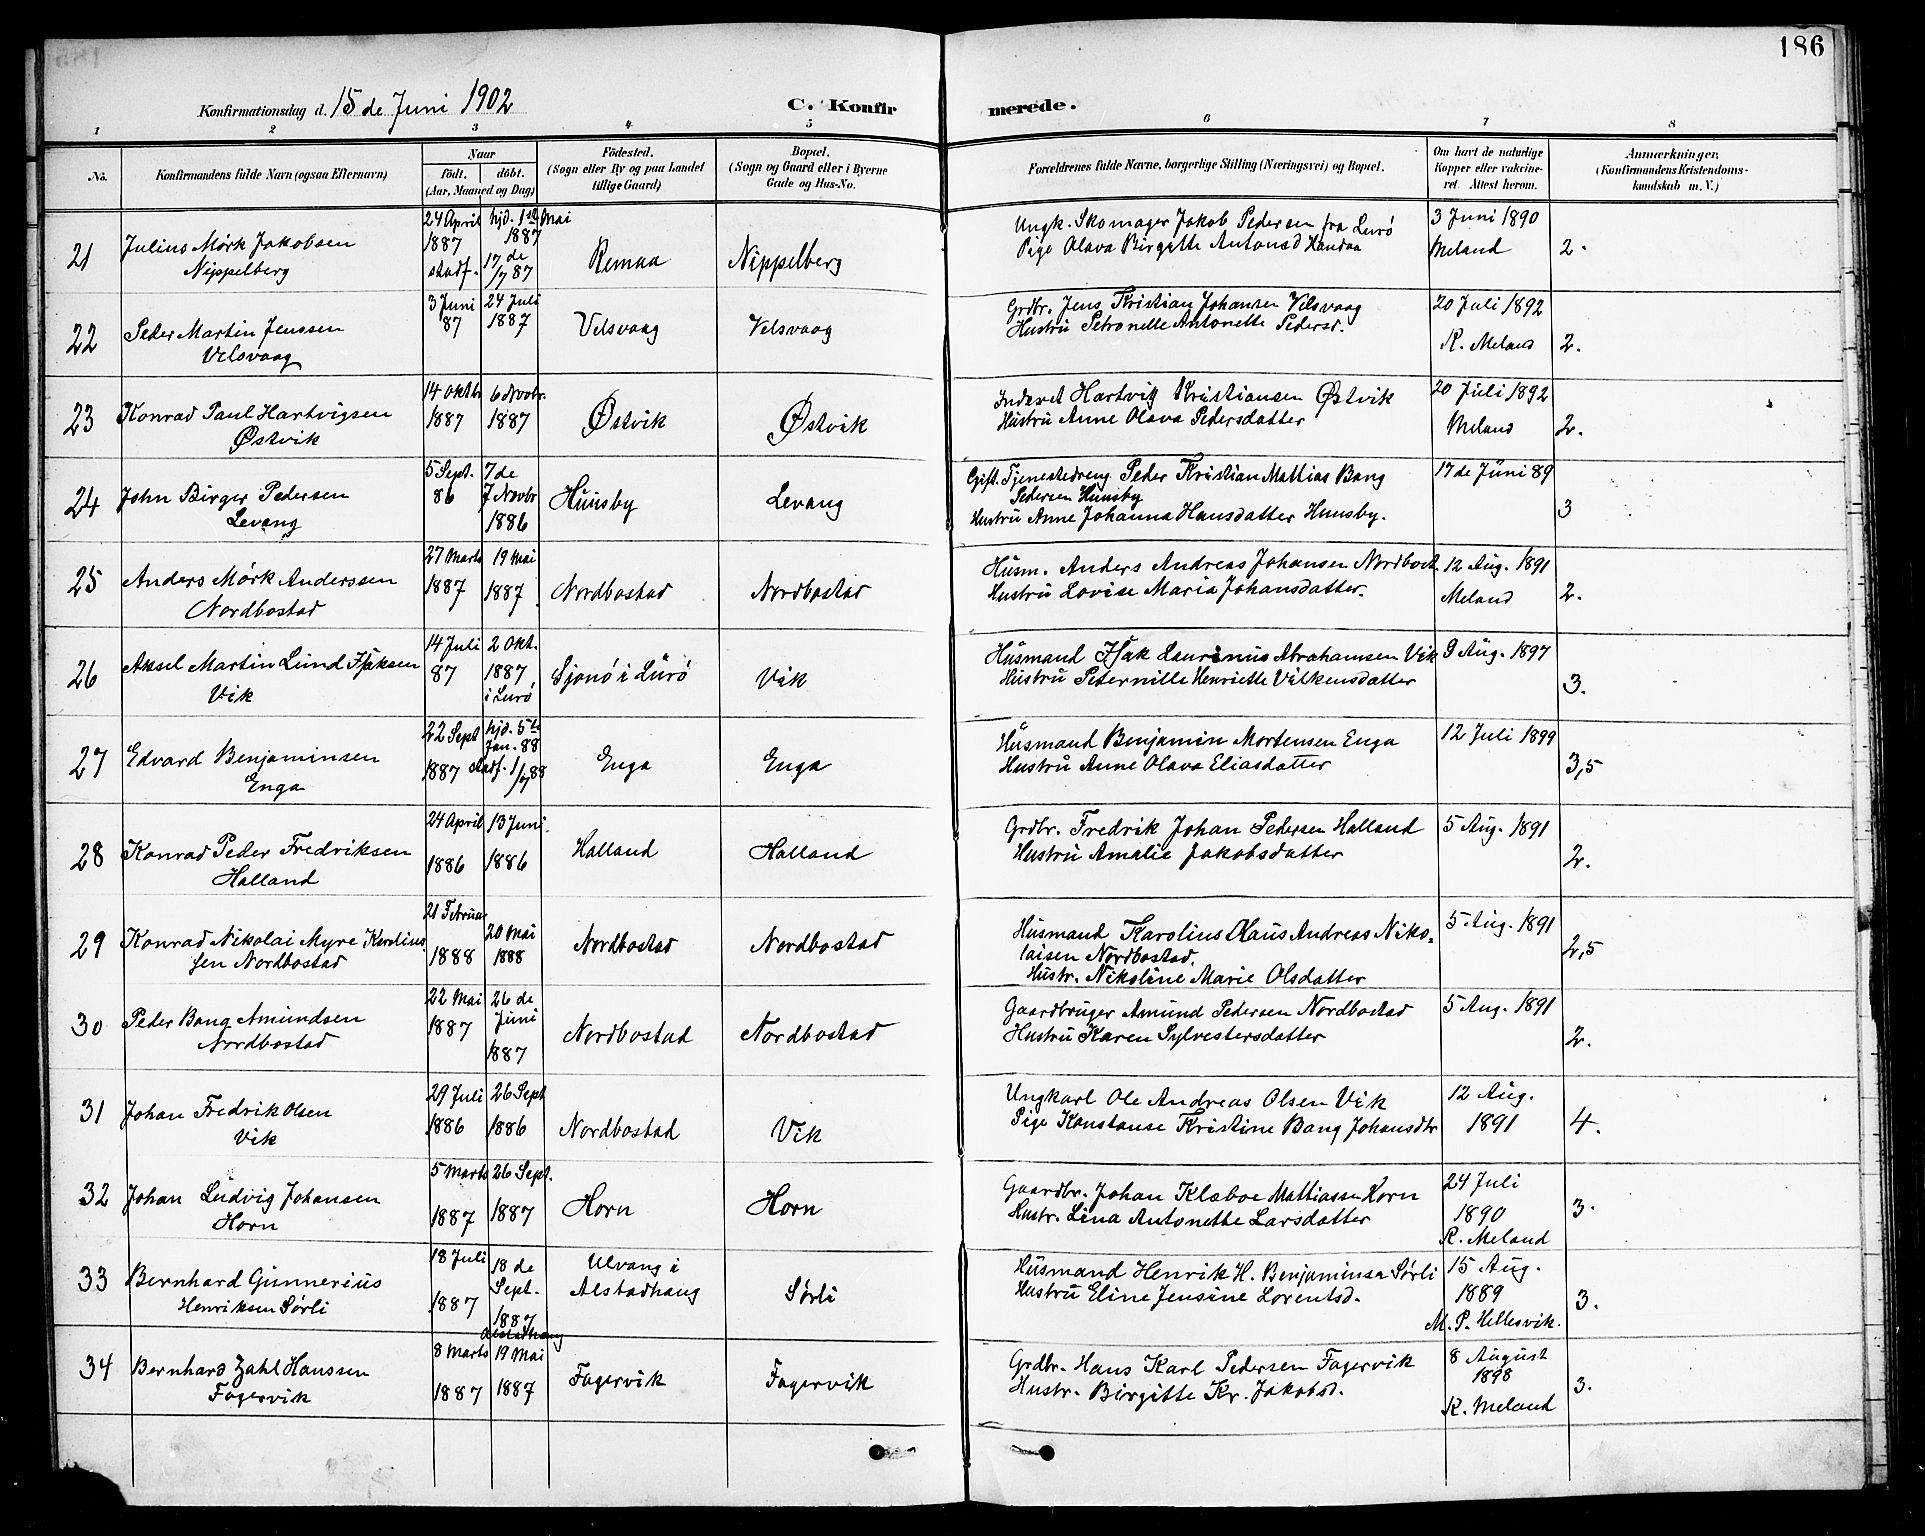 186
Konfirmationsdag d. 15 de Juni 1902
C. Konfirmerede.
1 2 3 4 5 6 7 8
No.
Konfirmandens fulde Navn (ogsaa Efternavn)
Naar
födt. döbt.
(Aar, Maaned og Dag)
Födested.
(Sogn eller By og paa Landet
tillige Gaard)
Bopæl.
(Sogn og Gaard eller i Byerne
Gade og Hus-No.
Forældrenes fulde Navne, borgerlige Stilling (Næringsvei) og Bopæl.
Om havt de naturlige
Kopper eller vaccine-
ret. Attest herom.
Anmærkninger,
(Konfirmandens Kristendoms-
kundskab m. V.)
21 Julius Mørk Jakobsen
Nippelberg
24 April
1887
stadf.
hjd. 1ste Mai
1887
17 de
/7 87
Remaa
Nippelberg
Ungk. Skomager Jakob Pedersen fra Lurö
Pige Olava Birgitte Antonsd Handaa
3 Juni 1890
Meland
2.
22 Peder Martin Jenssen
Velsvaag
3 Juni
87
24 Juli
1887
Velsvaag
Velsvaag
Grdbr. Jens Kristian Johansen Velsvaag
Hustru Petronelle Antonette Pedersd.
20 Juli 1892
R. Meland
2.
23 Konrad Paul Hartvigsen
Østvik
14 Oktbr
1887
6 Novbr.
1887
Østvik
Østvik
Inderst Hartvig Kristiansen Østvik
Hustru Anne Olava Pedersdatter
20 Juli 1892
Meland
2.
24 John Birger Pedersen
Levang
5 Sept.
86
7 de
7 Novbr
1886
Huusby
Levang
Gift. Tjenestedreng Peder Kristian Mattias Bang
Pedersen Huusby
Hustru Anne Johanna Hansdatter Huusby.
17 de Juni 89
3
25 Anders Mørk Anderssen
Nordbostad
27 Marts
1887
19 Mai
1887
Nordbostad
Nordbostad
Husm. Anders Andreas Johansen Nordbost.
Hustru Lovise Maria Johansdatter.
12 Aug. 1891
Meland
2.
26 Aksel Martin Lund Isaksen
Vik
14 Juli
87
2 Okt.
1887
i Lurö
Sjonö i Lurö
Vik
Husmand Isak Laurinus Abrahamsen Vik
Hustru Peternille Henriette Vilkensdatter
9 Aug. 1897
3.
27 Edvard Benjaminsen
Enga
22 Sept
1887
hjd. 5te
Jan. 88
stadf. 1/7 88
Enga
Enga
Husmand Benjamin Mortensen Enga
Hustru Anne Olava Eliasdatter
12 Juli 1899
3,5
28 Konrad Peder Fredriksen
Halland
24 April
1886
13 Juni
1886
Halland
Halland
Grdbr. Fredrik Johan Pedersen Halland
Hustru Amalie Jakobsdatter
5 Aug. 1891
2.
29 Konrad Nikolai Myre Karolius
sen Nordbostad
21 Februar
1888
20 Mai
1888
Nordbostad
Nordbostad
Husmand Karolius Klaus Andreas Niko-
laisen Nordbostad.
Hustr. Nikoline Marie Olsdatter
5 Aug. 1891
2,5
30 Peder Bang Amundsen
Nordbostad
22 Mai
1887
26 de
Juni
1887
Nordbostad
Nordbostad
Gaardbruger Amund Pedersen Nordbostad
Hustru Karen Sylvestersdatter
5 Aug. 1891
2.
31 Johan Fredrik Olsen
Vik
29 Juli
1886
26 Sept
1886
Nordbostad
Vik
Ungkarl Ole Andreas Olsen Vik
Pige Konstanse Kristine Bang Johansdtr
12 Aug.
1891
4.
32 Johan Ludvig Johansen
Horn
5 Marts
1887
26 Sept.
1887
Horn
Horn
Gaardbr. Johan Klæboe Mattiassen Horn
Hustr. Lina Antonette Larsdatter
24 Juli
1890
R. Meland
3.
33 Bernhard Gunnerius
Henriksen Sørli
18 Juli
1887
18 de
Sept.
1887
Alstadhaug
Ulvang i
Alstadhaug
Sørli
Husmand Henrik H. Benjaminsen Sørli
Hustru Eline Jensine Lorentsd.
15 Aug.
1889
M. P. Hellesvik.
3.
34 Bernhard Zahl Hanssen
Fagervik
8 Marts
1887
19 Mai
1887
Fagervik
Fagervik
Grdbr. Hans Karl Pedersen Fagervik
Hustr. Birgitte Kr. Jakobsd.
8 August
1898
R. Meland
3.